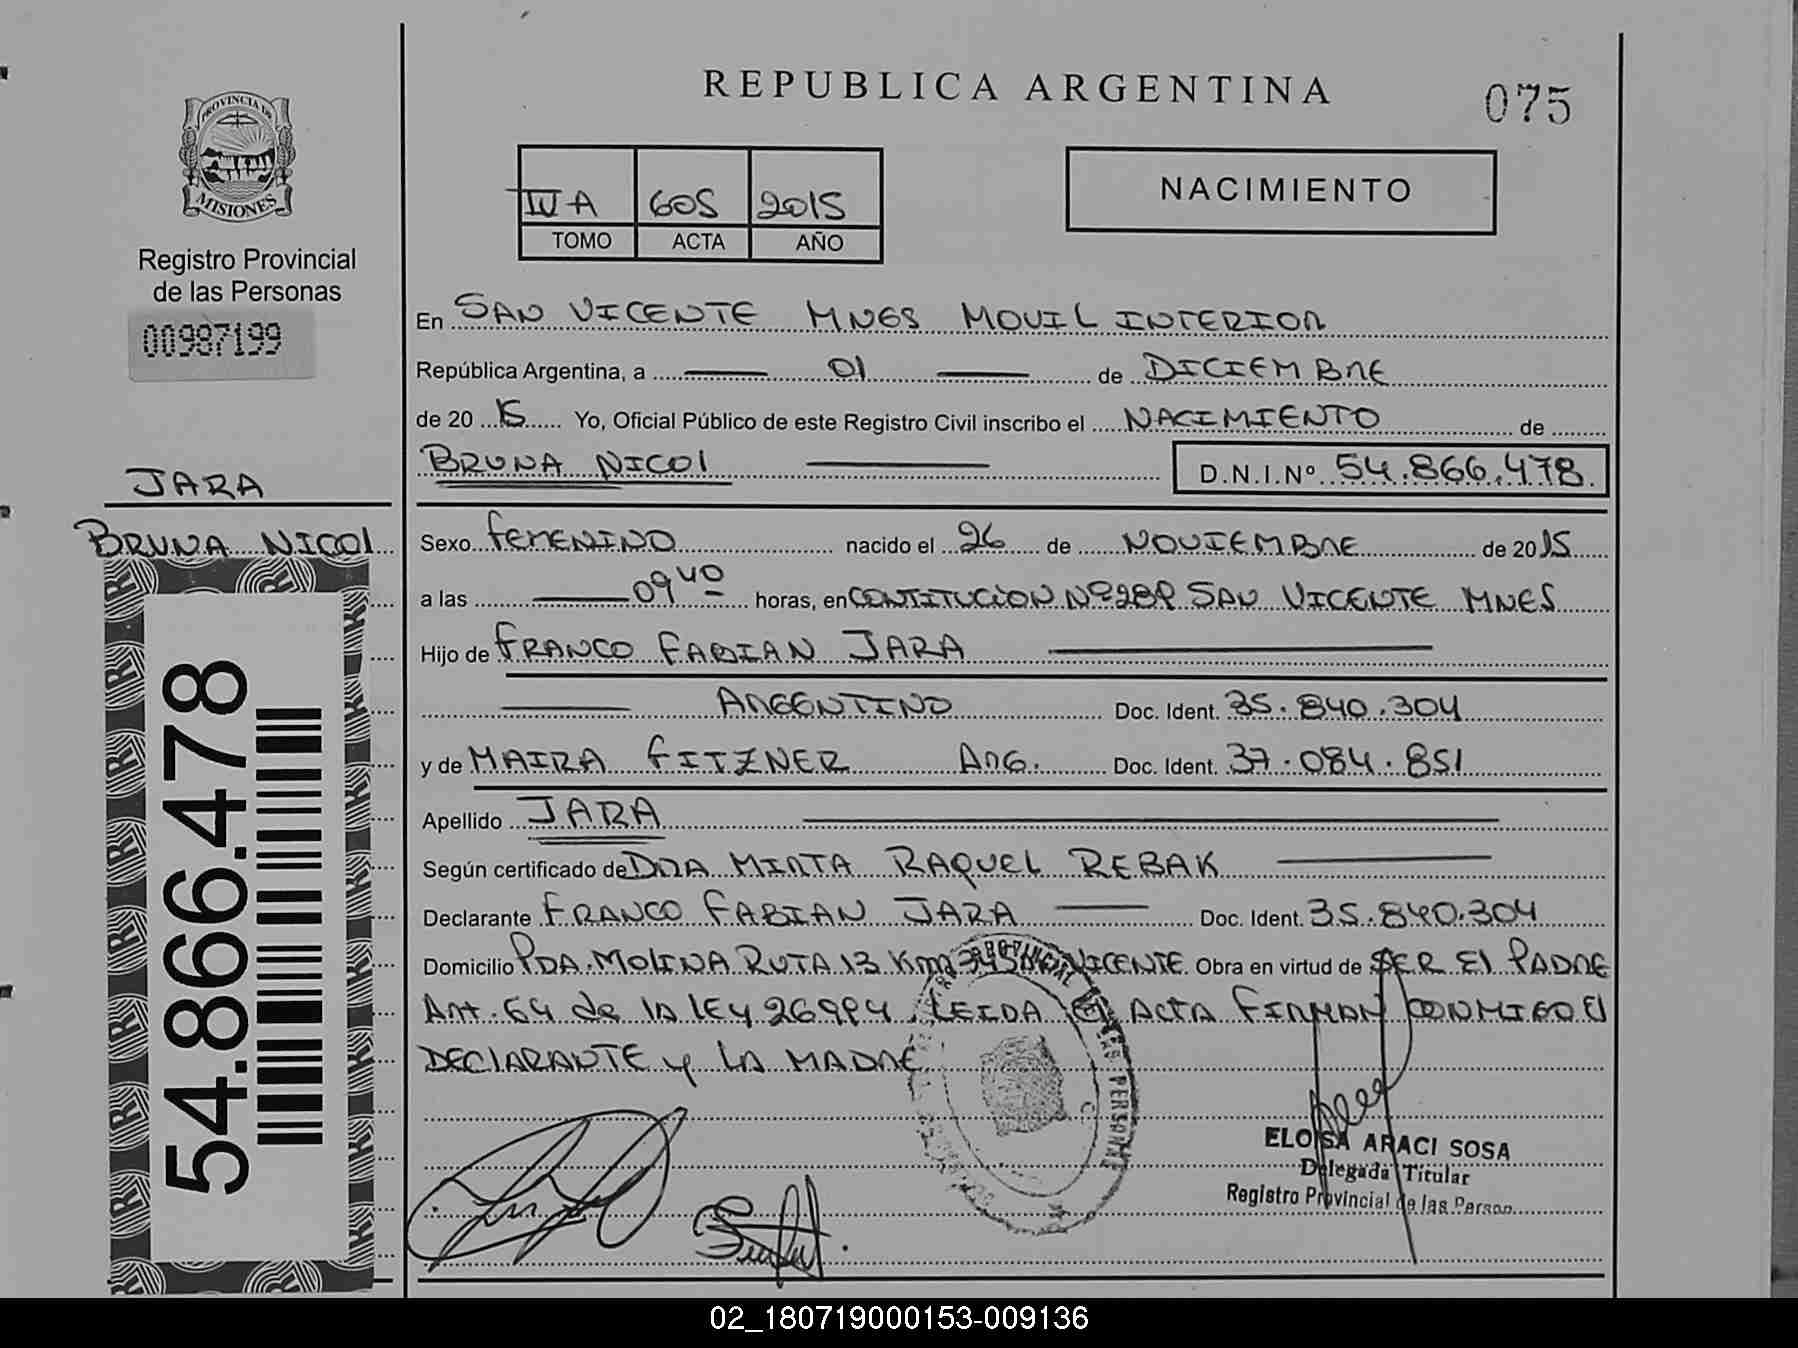 REPUBLICA ARGENTINA
075
PROVINCIA DE
MISIONES
Registro Provincial
de las Personas
00987199
IV A 605 2015
TOMO ACTA AÑO
NACIMIENTO
En SAN VICENTE MNES MOVIL INTERIOR
República Argentina, a 01 de DICIEMBRE
de 2015 Yo, Oficial Público de este Registro Civil inscribo el NACIMIENTO de
BRUNA NICOl D.N.I.Nº 54.866.478.
JARA
BRUNA NICOl
Sexo FEMENINO nacido el 26 de NOVIEMBRE de 2015
a las 09 40 horas, en CONTITUCIÓN Nº 289 SAN VICENTE MNES
Hijo de FRANCO FABIAN JARA
ARGENTINO Doc. Ident. 35.840.304
y de MAIRA FITZNER ARG. Doc. Ident. 37.084.851
Apellido JARA
Según certificado de DRA MIRTA RAQUEL REBAK
Declarante FRANCO FABIAN JARA Doc. Ident. 35.840.304
Domicilio PDA. MOLINA RUTA 13 Km VICENTE. Obra en virtud de SER El PADRE
Art. 64 de lA lEy 26994. LEIDA El ACTA FIRMAN CONMIGO El
DEClARANTE y LA MADRE
54.866.478
ELOISA ARACI SOSA
Delegada Titular
Registro Provincial de las Person
02_180719000153-009136